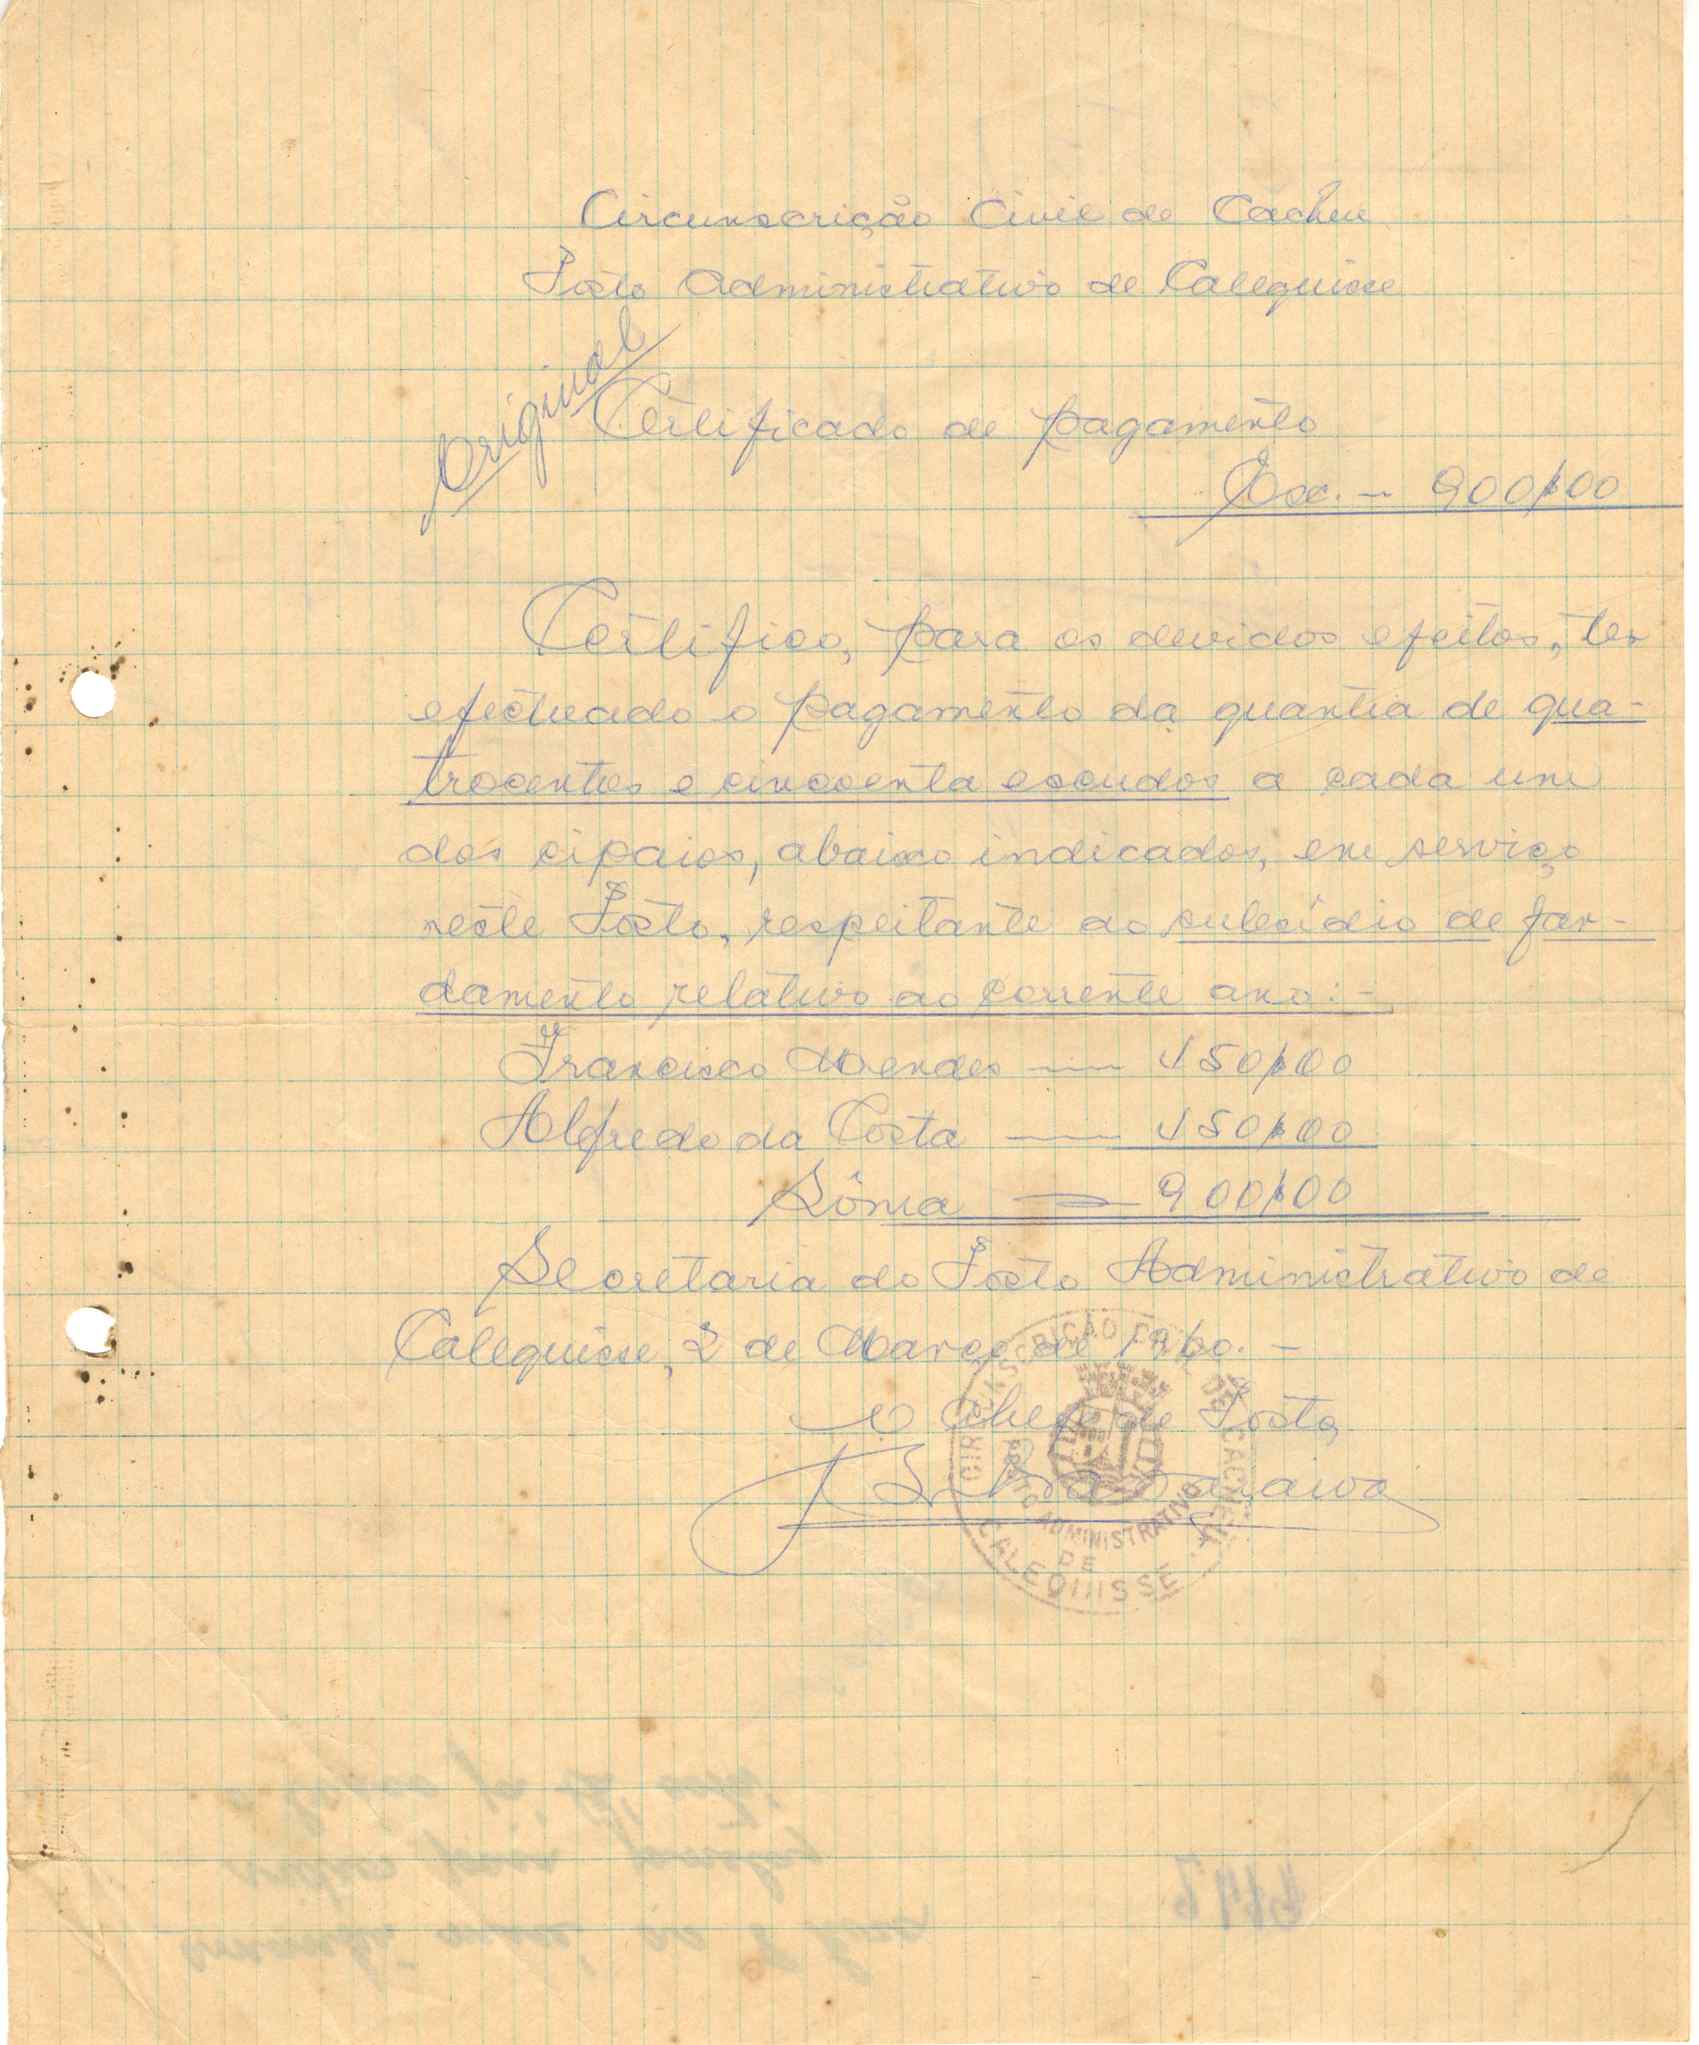 Circunscrição Civil de Cacheu
Posto Administrativo de Calequisse
Original
Certificado de pagamento
Esc. — 900$00
Certifico, para os devidos efeitos, ter
efectuado o pagamento da quantia de qua-
trocentos e cincoenta escudos a cada um
dos cipaios, abaixo indicados, em serviço
neste Posto, respeitante ao subsídio de far-
damento relativo ao corrente ano:-
Francisco Mendes — 450$00
Alfredo da Costa — 450$00
Sôma — 900$00
Secretaria do Posto Administrativo de
Calequisse, 2 de Março de 1960. -
O Chefe de Posto,
CIRCUNSCRIÇÃO CIVIL DE CACHEU
POSTO ADMINISTRATIVO
DE
CALEQUISSE